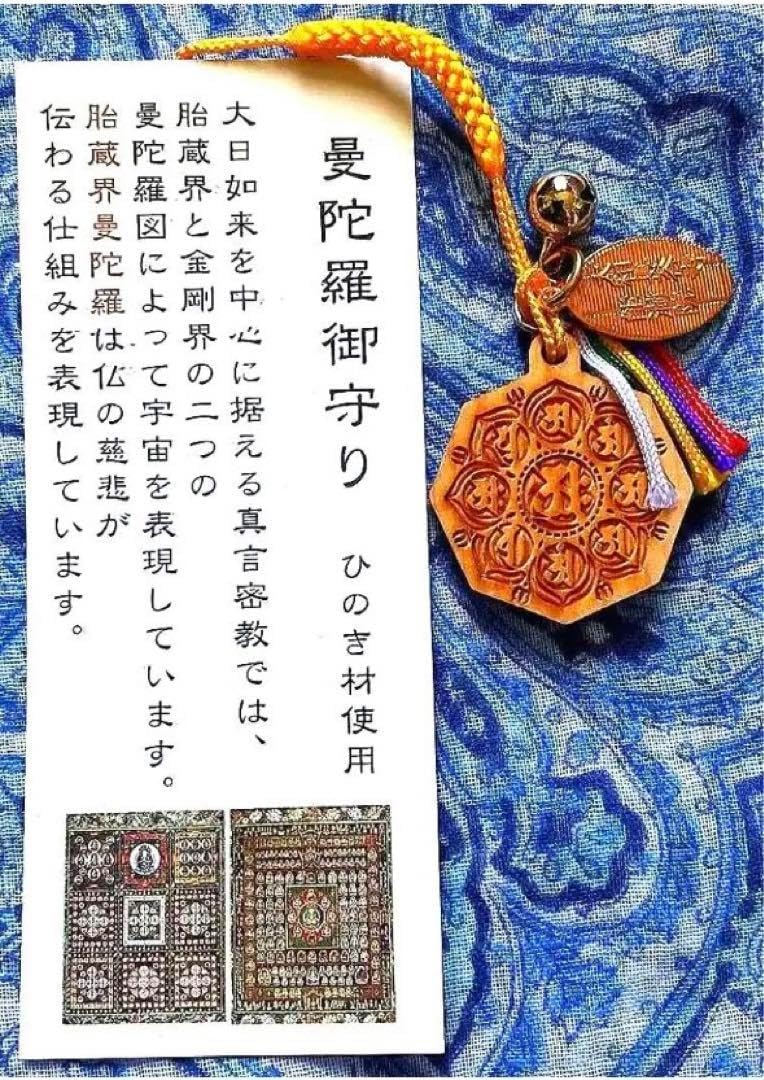 曼陀羅御守り ひのき材使用
大日如来を中心に据える真言密教では、
胎蔵界と金剛界の二つの
曼陀羅図によって宇宙を表現しています。
胎蔵界曼陀羅は仏の慈悲が
伝わる仕組みを表現しています。